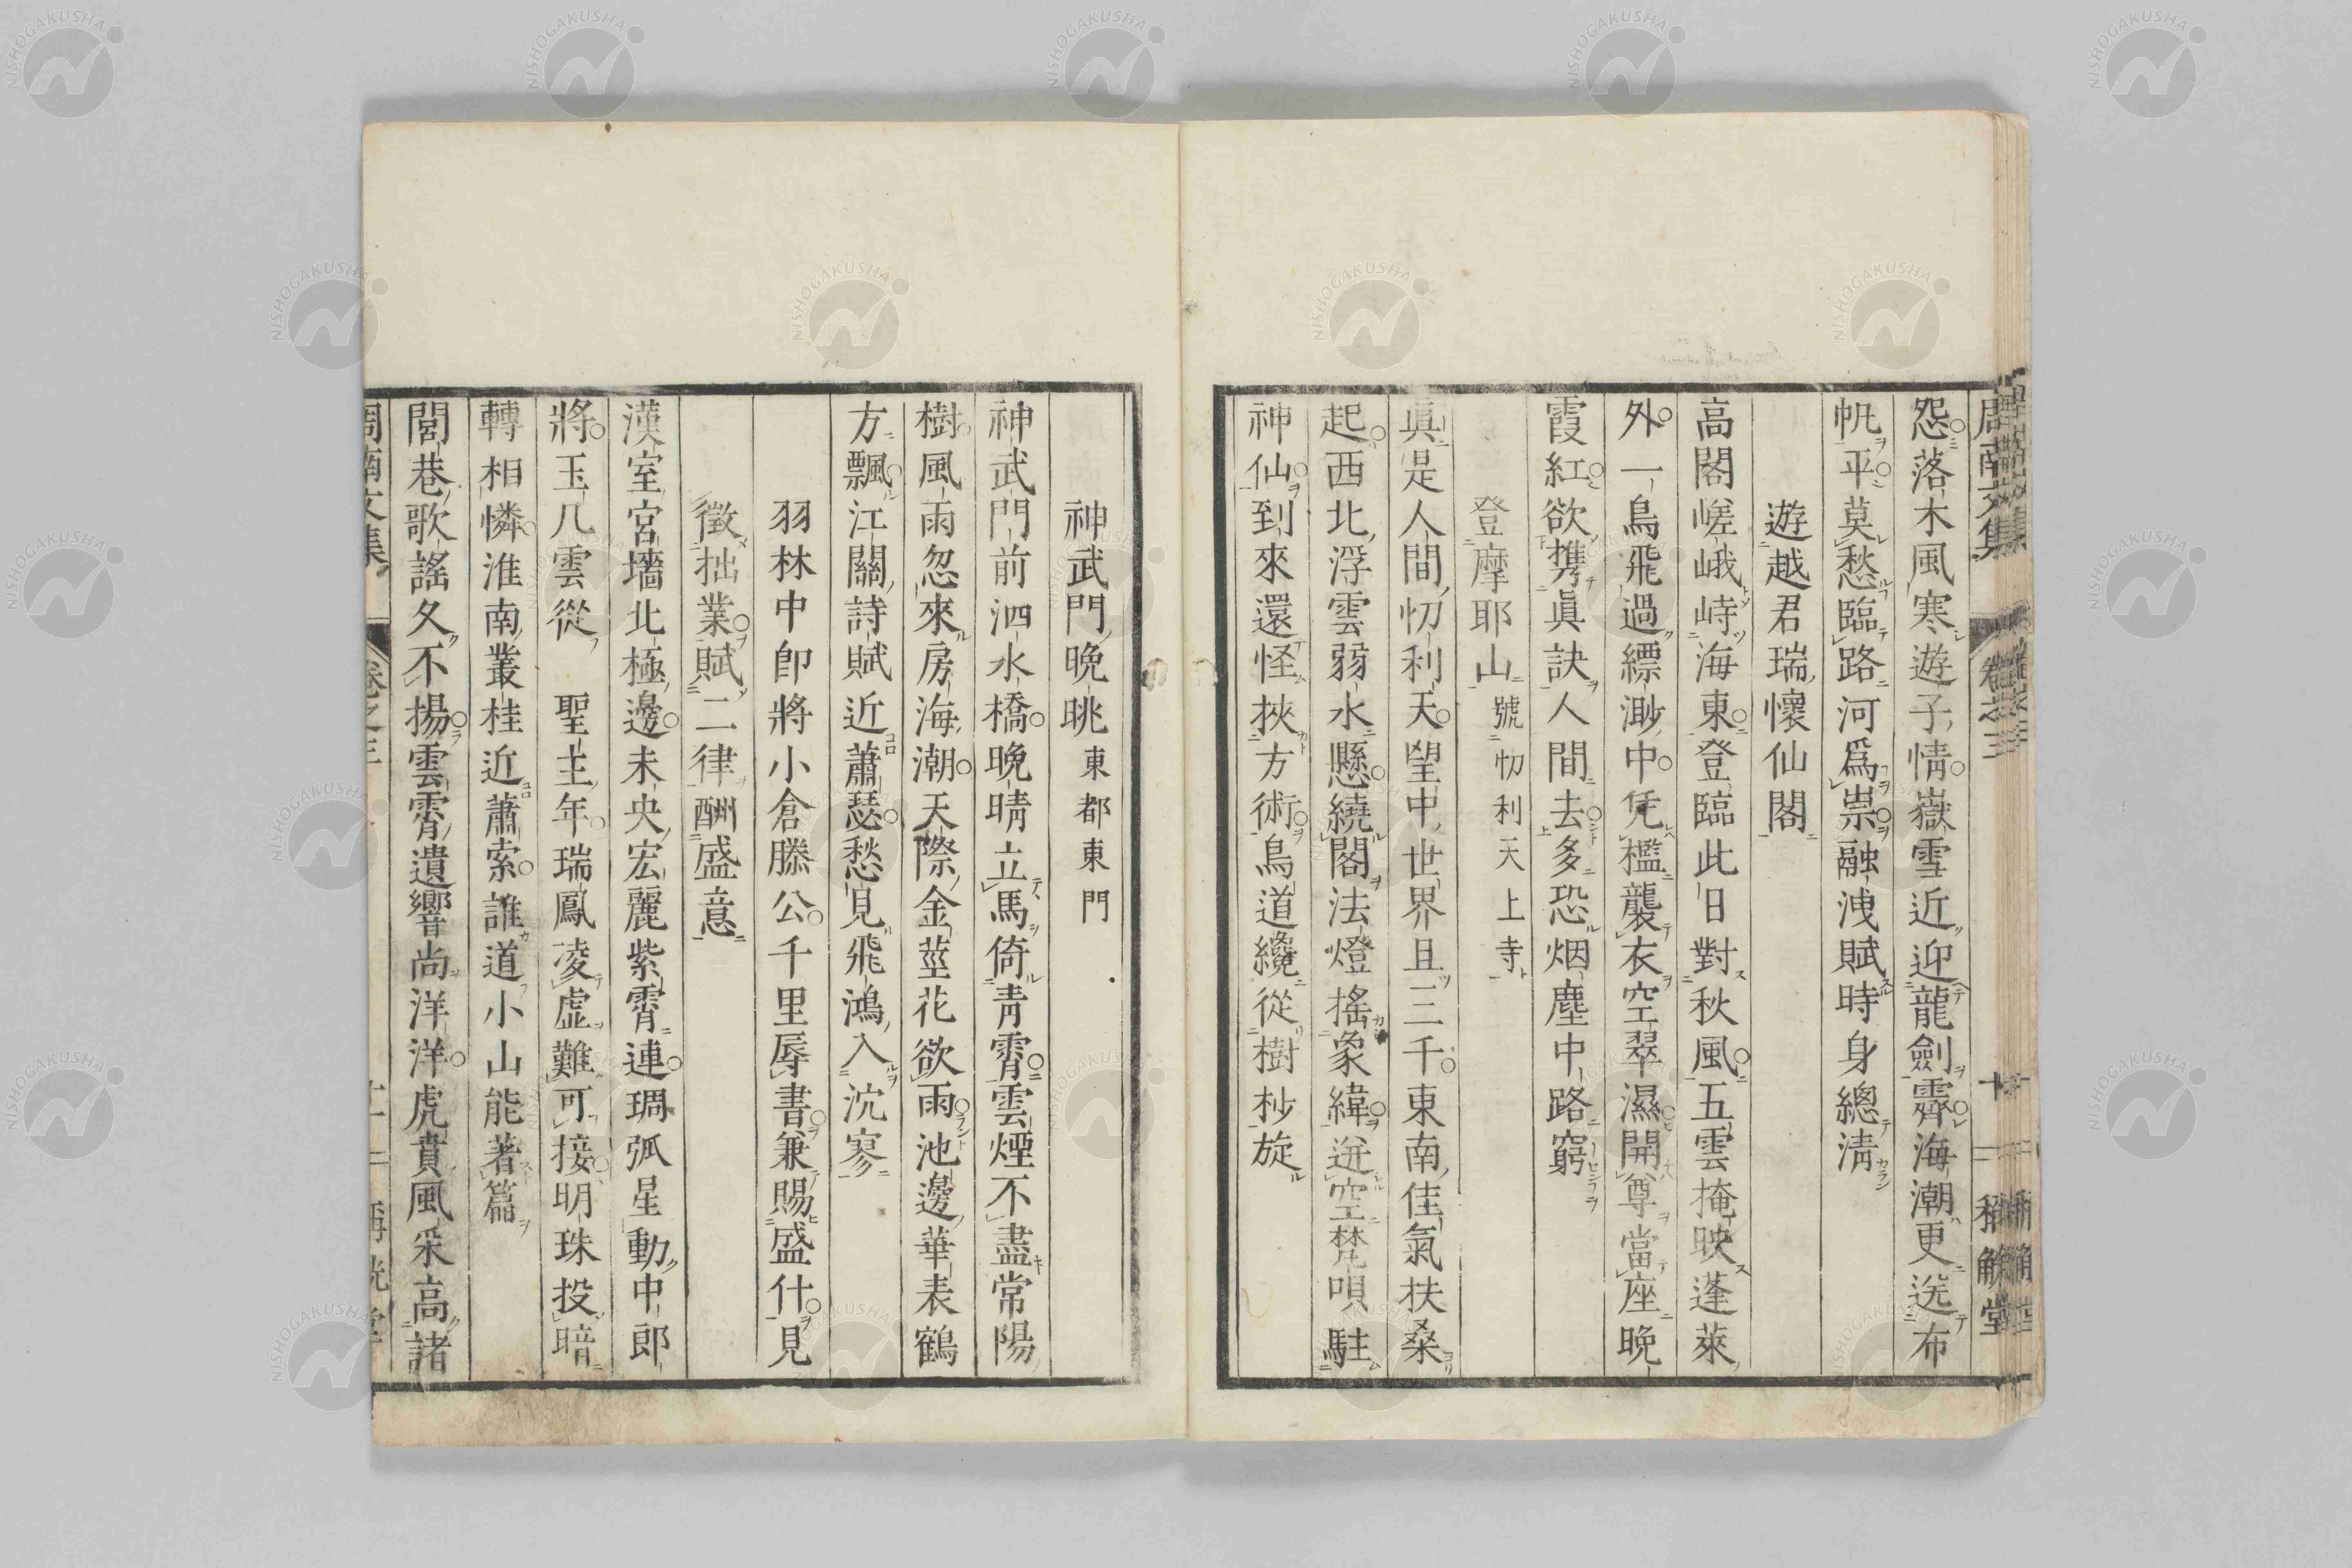 怨落木風寒遊子情嶽雪近迎龍劍霽海潮更洗布
帆平莫愁臨路河爲祟融洩賦時身總淸
遊越君瑞懷仙閣
高閣嵯峨峙海東登臨此日對秋風五雲掩映蓬萊
外一鳥飛過縹渺中凭檻襲衣空翠濕開尊當座晚
霞紅欲攜眞訣人間去多恐烟塵中路窮
登摩耶山號忉利天上寺
眞是人間忉利天望中世界且三千東南佳氣扶桑
起西北浮雲弱水懸繞閣法燈搖象緯迸空梵唄駐
神仙到來還怪挾方術鳥道纔從樹杪旋
神武門晚眺東都東門
神武門前泗水橋晚晴立馬倚靑霄雲煙不盡常陽
樹風雨忽來房海潮天際金莖花欲雨池邊華表鶴
方飄江關詩賦近蕭瑟愁見飛鴻入沆寥
羽林中郎將小倉滕公千里辱書兼賜盛什見
徵拙業賦二律酬盛意
漢室宮墻北極邊未央宏麗紫霄連琱弧星動中郎
將玉几雲從聖主年瑞鳳凌虛難可接明珠投暗
轉相憐淮南叢桂近蕭索誰道小山能著篇
閭巷歌謠久不揚雲霄遺響尚洋洋虎賁風采高諸
周南文集 卷之三 十二